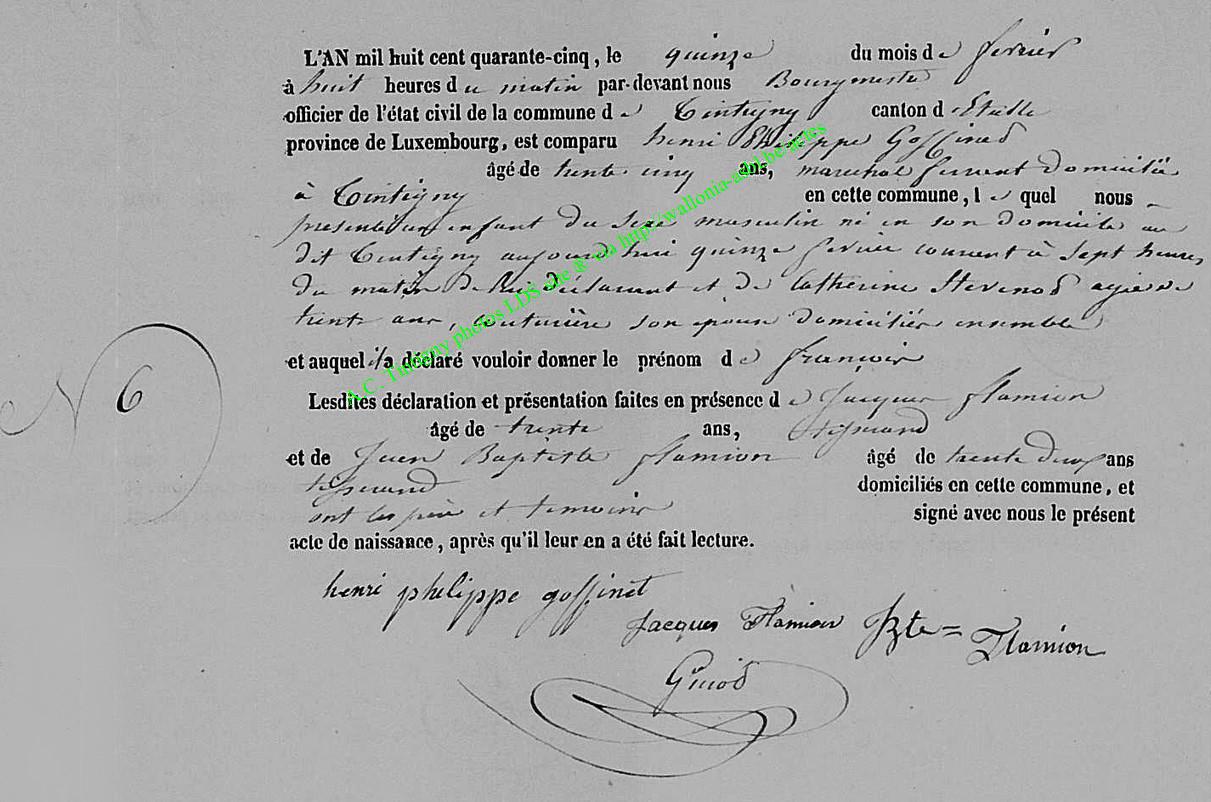 L'AN mil huit cent quarante-cinq, le quinze du mois de fevrier
à huit heures du matin par-devant nous Bourgmestre
officier de l'état civil de la commune de Tintigny canton d'Etalle
province de Luxembourg, est comparu henri Philippe Goffinet
âgé de trente cinq ans, marechal ferrant domicilié
à Tintigny en cette commune, lequel nous
presente un enfant du sexe masculin né en son domicile au
dit Tintigny aujourd'hui quinze fevrier courant à sept heures
du matin de lui déclarant et de Catherine Stevenod agée de
trente ans, couturière son epouse domiciliés ensemble
et auquel il a déclaré vouloir donner le prénom de françois
N 6
Lesdites déclaration et présentation faites en présence de Jacques flamion
âgé de trente ans, tisserand
et de Jean Baptiste flamion âgé de trente deux ans
tisserand domiciliés en cette commune, et
ont les père et temoins signé avec nous le présent
acte de naissance, après qu'il leur en a été fait lecture.
henri philippe goffinet
Jacques Flamion Bte= Flamion
A.C. Tintigny photos LDS site ® via http://wallonia-asbl.be/actes